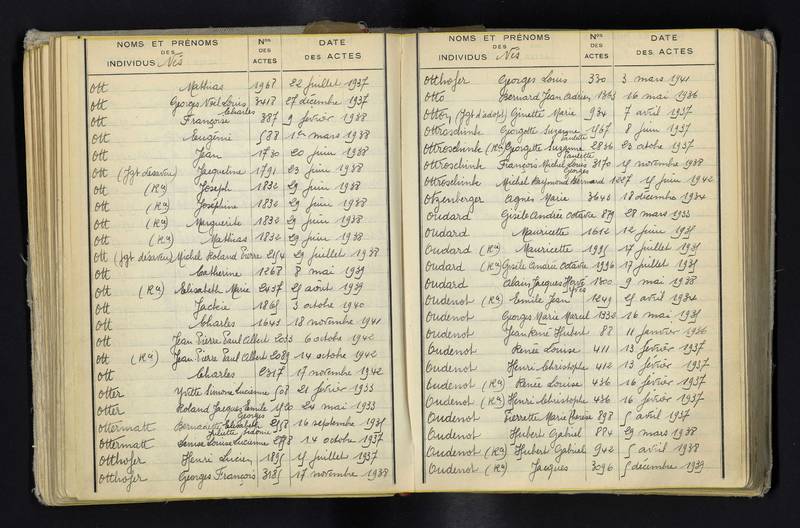 NOMS ET PRÉNOMS DES INDIVIDUS Nés Nos DES ACTES DATE DES ACTES
Ott Mathias 1968 22 juillet 1937
Ott Georges Noël Louis Charles 3418 27 décembre 1937
Ott Françoise 387 9 février 1938
Ott Eugénie 588 1er mars 1938
Ott Jean 1780 20 juin 1938
Ott (Jgt désaveu) Jacqueline 1791 23 juin 1938
Ott (Ra) Joseph 1832 29 juin 1938
Ott (Ra) Joséphine 1832 29 juin 1938
Ott (Ra) Marguerite 1832 29 juin 1938
Ott (Ra) Mathias 1832 29 juin 1938
Ott (Jgt désaveu) Michel Roland Pierre 2154 29 juillet 1938
Ott Catherine 1268 8 mai 1939
Ott (Ra) Elisabeth Marie 2437 25 août 1939
Ott Jackie 1865 3 octobre 1940
Ott Charles 1643 18 novembre 1941
Ott Jean Pierre Paul Albert 2033 6 octobre 1942
Ott (Ra) Jean Pierre Paul Albert 2089 14 octobre 1942
Ott Charles 2317 17 novembre 1942
Otter Yvette Simone Lucienne 508 21 février 1933
Otter Roland Jacques Emile Georges 1500 24 mai 1933
Ottermatt Bernadette Elisabeth Juliette Sidonie 2558 16 septembre 1935
Ottermatt Louise Lucienne 2798 14 octobre 1937
Otthofer Henri Lucien 1895 15 juillet 1937
Otthofer Georges François 3185 17 novembre 1938
NOMS ET PRÉNOMS DES INDIVIDUS Nés Nos DES ACTES DATE DES ACTES
Otthofer Georges Louis 330 3 mars 1941
Otto Bernard Jean Adrien 1363 16 mai 1936
Otton (Jgt d'adopt) Ginette Marie 934 7 avril 1937
Ottroschinke Georgette Suzanne Paulette 1567 8 juin 1937
Ottroschinke (Ra) Georgette Suzanne Paulette 2836 23 octobre 1937
Ottroschinke François Michel Louis Georges 3170 15 novembre 1938
Ottroschinke Michel Raymond Bernard 1227 15 juin 1942
Otzenberger Agnès Marie 3640 18 décembre 1934
Oudard Gisèle Andrée Octavie 879 28 mars 1933
Oudard Mauricette 1612 12 juin 1935
Oudard (Ra) Mauricette 1995 17 juillet 1935
Oudard (Ra) Gisèle Andrée Octavie 1996 17 juillet 1935
Oudard Alain Jacques Hervé Yves 1300 9 mai 1938
Oudenot (Ra) Emile Jean 1249 25 avril 1934
Oudenot Georges Marie Marcel 1330 16 mai 1935
Oudenot Jean René Hubert 82 11 janvier 1936
Oudenot Renée Louise 411 13 février 1937
Oudenot Henri Christophe 412 13 février 1937
Oudenot (Ra) Renée Louise 436 16 février 1937
Oudenot (Ra) Henri Christophe 436 16 février 1937
Oudenot Pierrette Marie Thérèse 898 5 avril 1937
Oudenot Hubert Gabriel 884 29 mars 1938
Oudenot (Ra) Hubert Gabriel 942 5 avril 1938
Oudenot (Ra) Jacques 3096 5 décembre 1939